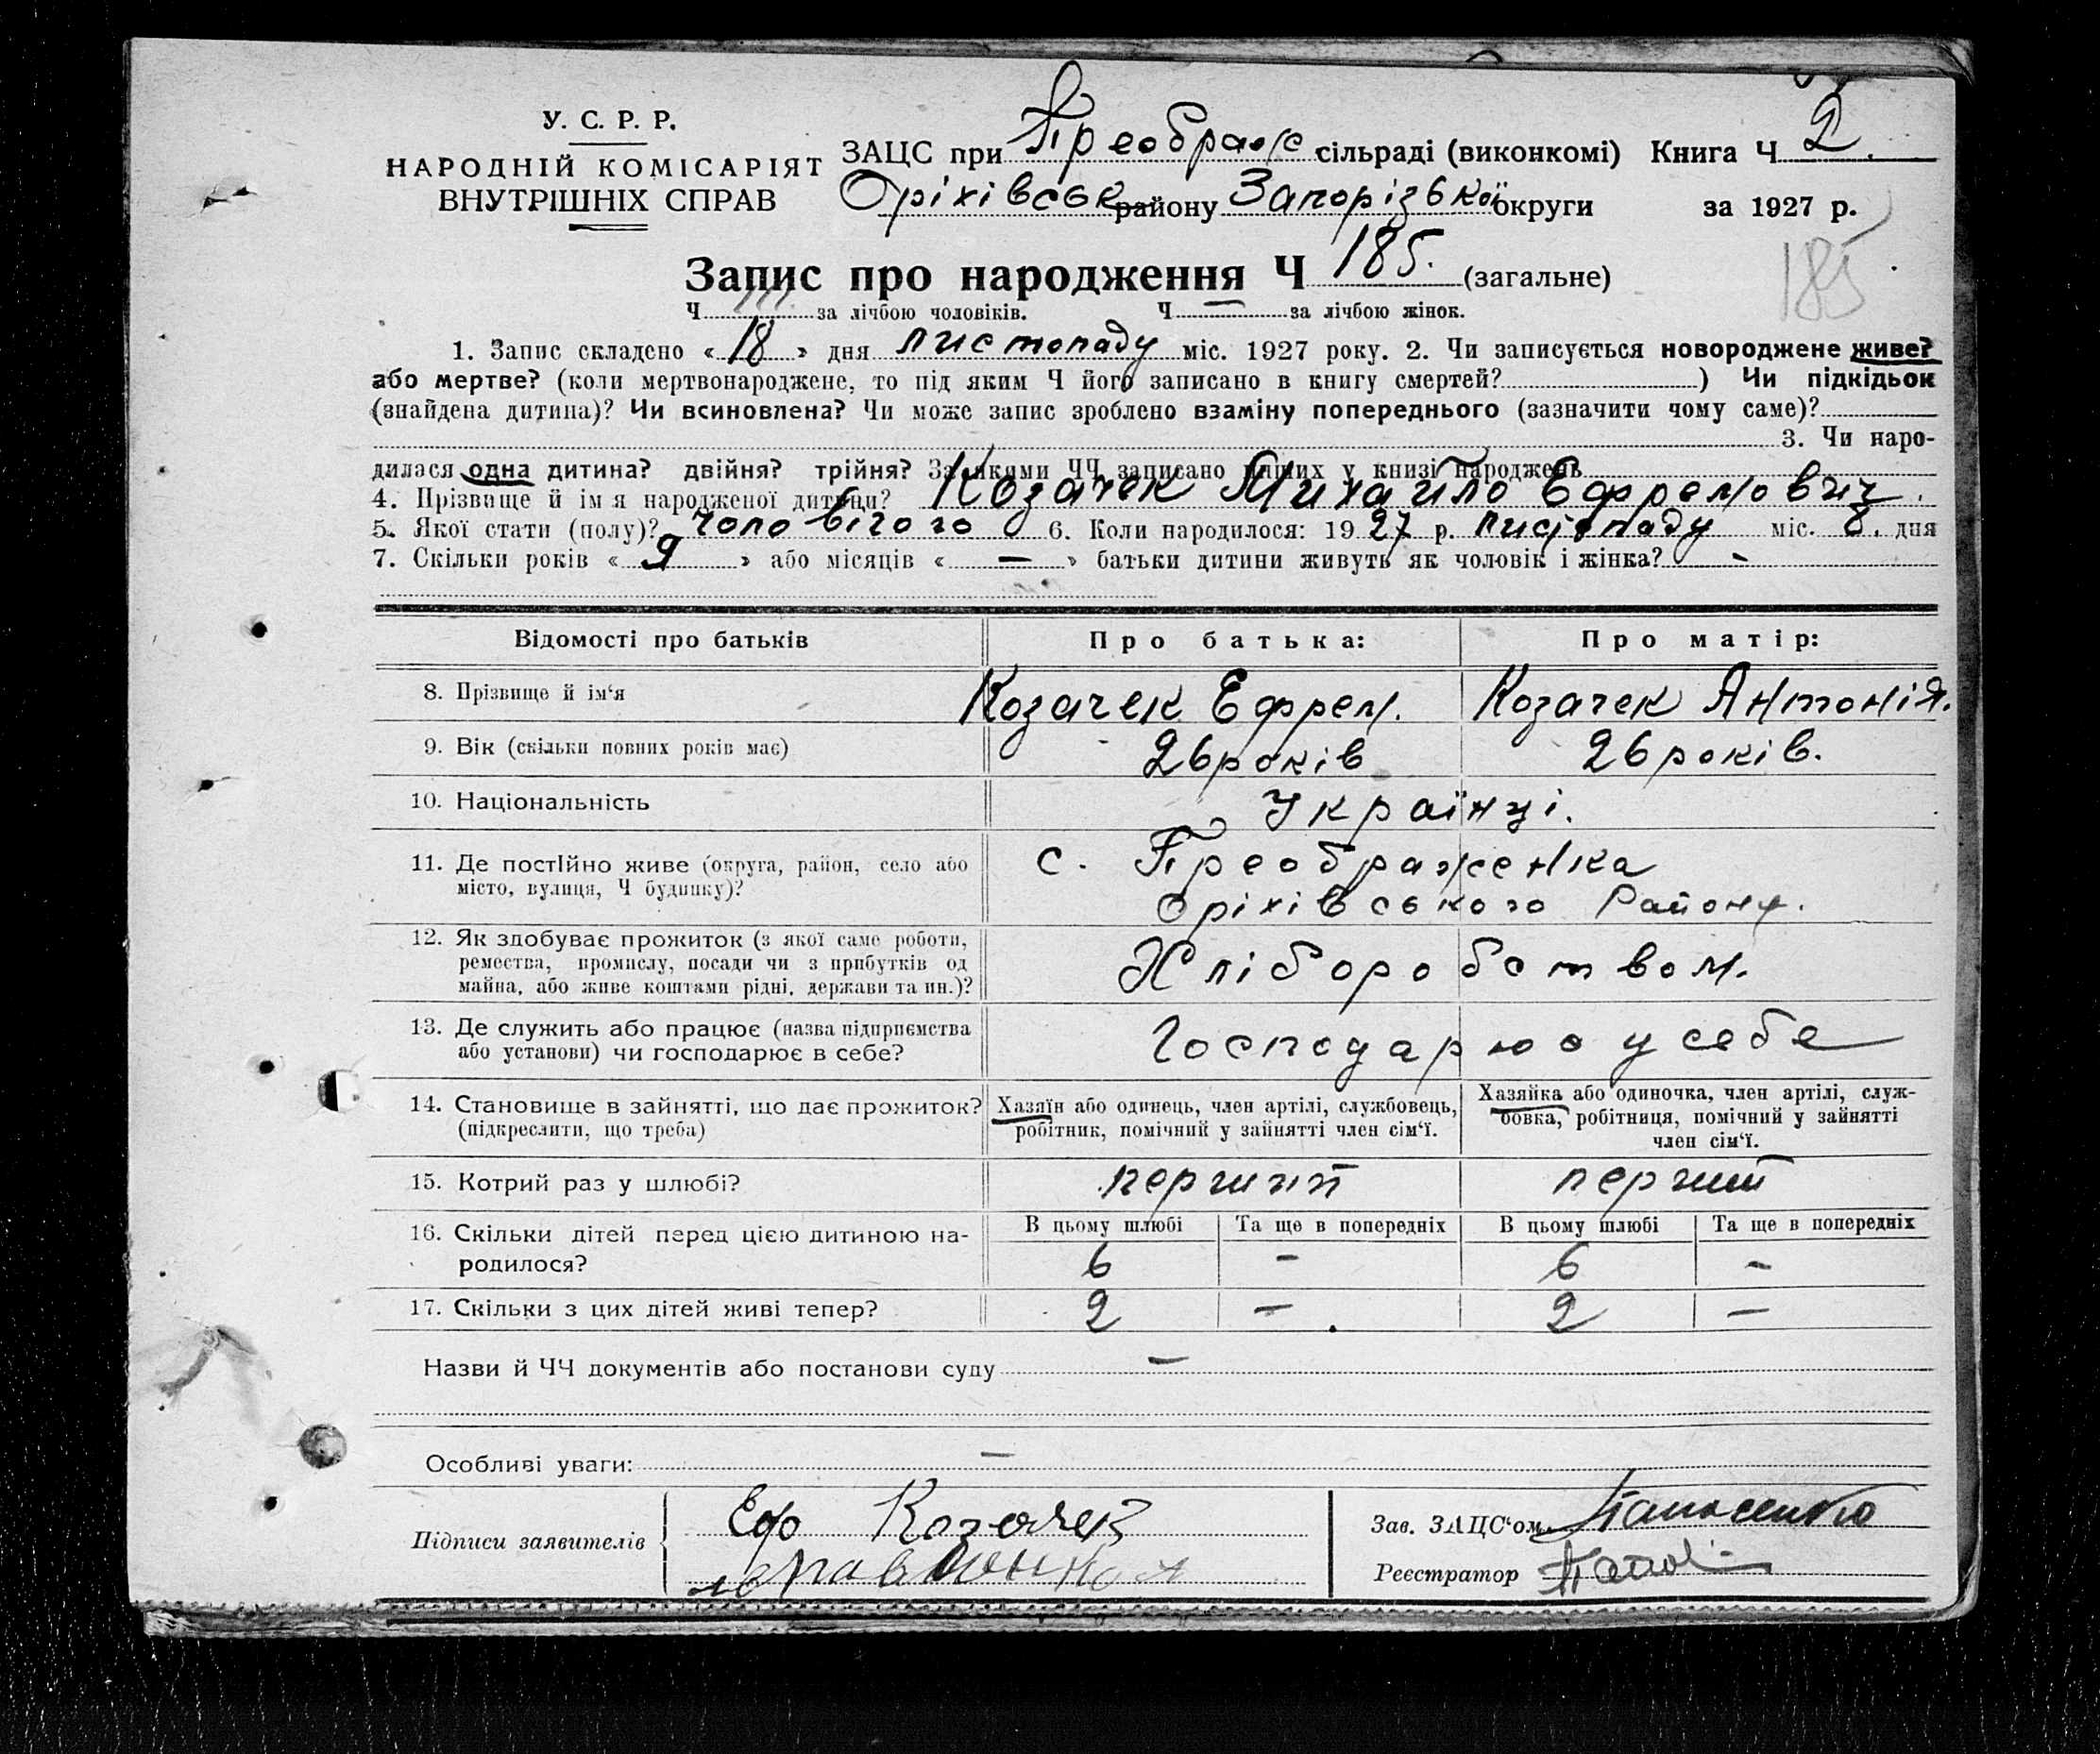 У. С. Р. Р.
НАРОДНІЙ КОМІСАРІЯТ
ВНУТРІШНІХ СПРАВ
ЗАЦС при Преображ сільраді (виконкомі) Книга Ч 2.
Оріхівськ району Запорізької округи за 1927 р.
Запис про народження Ч 185. (загальне)
185
Ч 111. за лічбою чоловіків. Ч — за лічбою жінок.
1. Запис складено « 18 » дня листопаду міс. 1927 року. 2. Чи записується новороджене живе?
або мертве? (коли мертвонароджене, то під яким Ч його записано в книгу смертей? ) Чи підкідьок
(знайдена дитина)? Чи всиновлена? Чи може запис зроблено взаміну попереднього (зазначити чому саме)?
3. Чи наро-
дилася одна дитина? двійня? трійня? За якими ЧЧ записано інших у книзі народжень
4. Прізвище й ім я народженої дитини? Козачек Михайло Ефремович.
5. Якої стати (полу)? чоловічого 6. Коли народилося: 1927 р. листопаду міс. 8. дня
7. Скільки років « 9 » або місяців « — » батьки дитини живуть як чоловік і жінка? -
Відомості про батьків Про батька: Про матір:
8. Прізвище й ім‘я Козачек Ефрем. Козачек Антонія.
9. Вік (скільки повних років має) 26 років 26 років.
10. Національність Українці.
11. Де постійно живе (округа, район, село або
місто, вулиця, Ч будинку)? с. Преображенка
Оріхівського Району.
12. Як здобуває прожиток (з якої саме роботи,
ремества, промислу, посади чи з прибутків од
майна, або живе коштами рідні, держави та ин.)? Хліборобством.
13. Де служить або працює (назва підприємства
або установи) чи господарює в себе? Господарюю у себе
14. Становище в зайнятті, що дає прожиток?
(підкреслити, що треба)
Хазяїн або одинець, член артілі, службовець,
робітник, помічний у зайнятті член сім‘ї.
Хазяйка або одиночка, член артілі, служ-
бовка, робітниця, помічний у зайнятті
член сім‘ї.
15. Котрий раз у шлюбі? перший перший
16. Скільки дітей перед цією дитиною на-
родилося?
В цьому шлюбі Та ще в попередніх В цьому шлюбі Та ще в попередніх
6 - 6 -
17. Скільки з цих дітей живі тепер? 2 - 2 -
Назви й ЧЧ документів або постанови суду —
Особливі уваги: —
Підписи заявителів Еф Козачек
Зав. ЗАЦС‘ом
Реєстратор